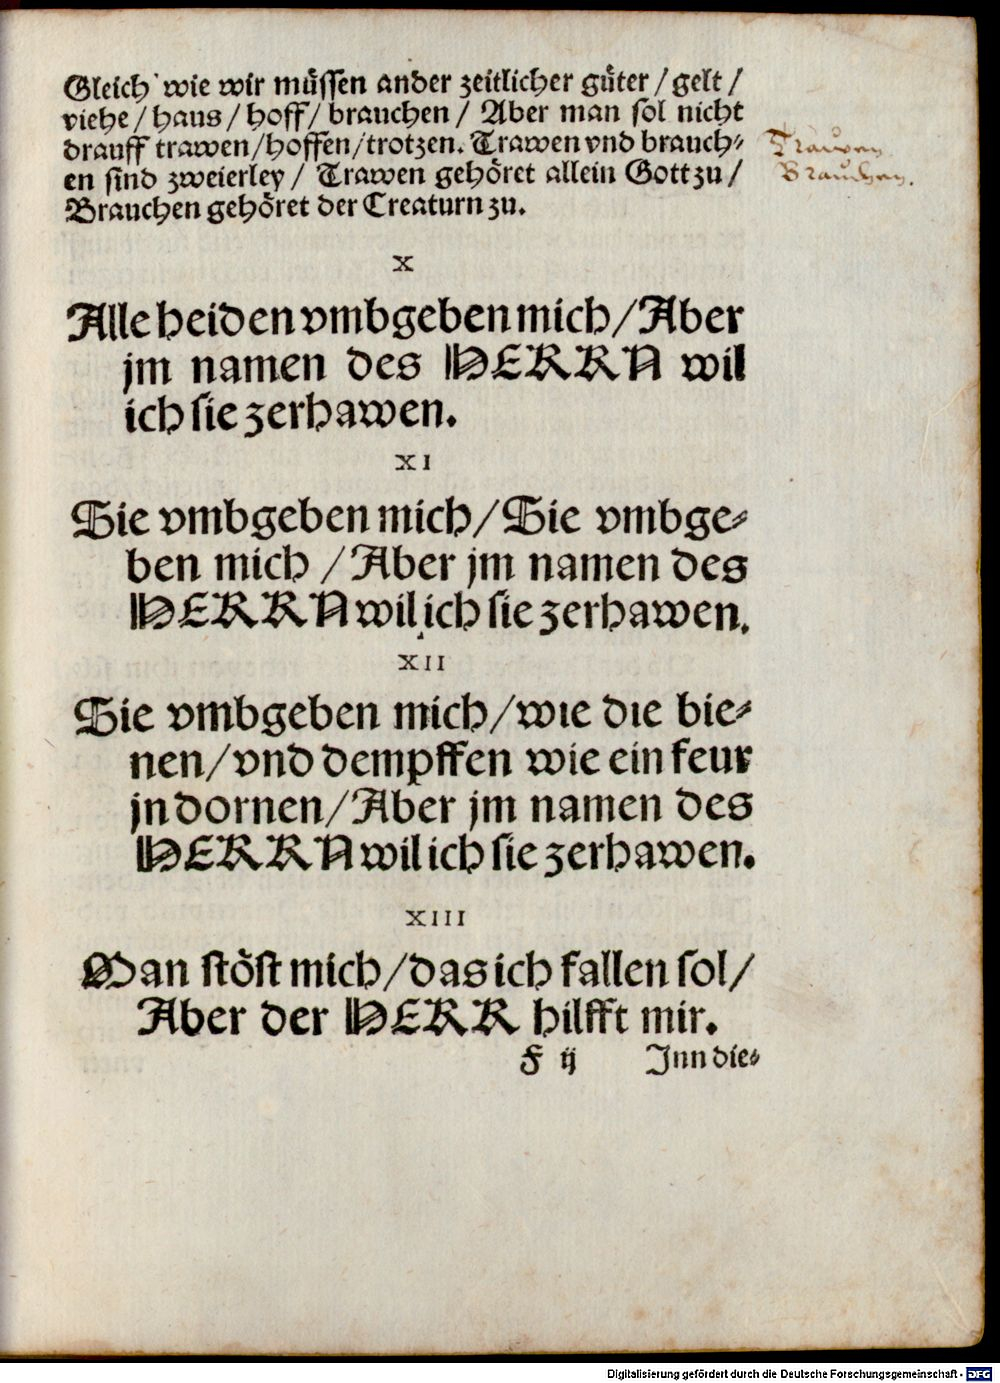 Gleich wie wir müssen ander zeitlicher güter / gelt /
viehe / haus / hoff / brauchen / Aber man sol nicht
drauff trawen / hoffen / trotzen. Trawen vnd brauch⸗
en sind zweierley / Trawen gehöret allein Gott zu /
Brauchen gehöret der Creaturn zu.
Trauwen
Brauchen.
X
Alle heiden vmbgeben mich / Aber
jm namen des HERRN wil
ich sie zerhawen.
XI
Sie vmbgeben mich / Sie vmbge⸗
ben mich / Aber jm namen des
HERRN wil ich sie zerhawen.
XII
Sie vmbgeben mich / wie die bie⸗
nen / vnd dempffen wie ein feur
jn dornen / Aber jm namen des
HERRN wil ich sie zerhawen.
XIII
Man stöst mich / das ich fallen sol /
Aber der HERR hilfft mir.
F ij Inn die⸗
Digitalisierung gefördert durch die Deutsche Forschungsgemeinschaft - DFG